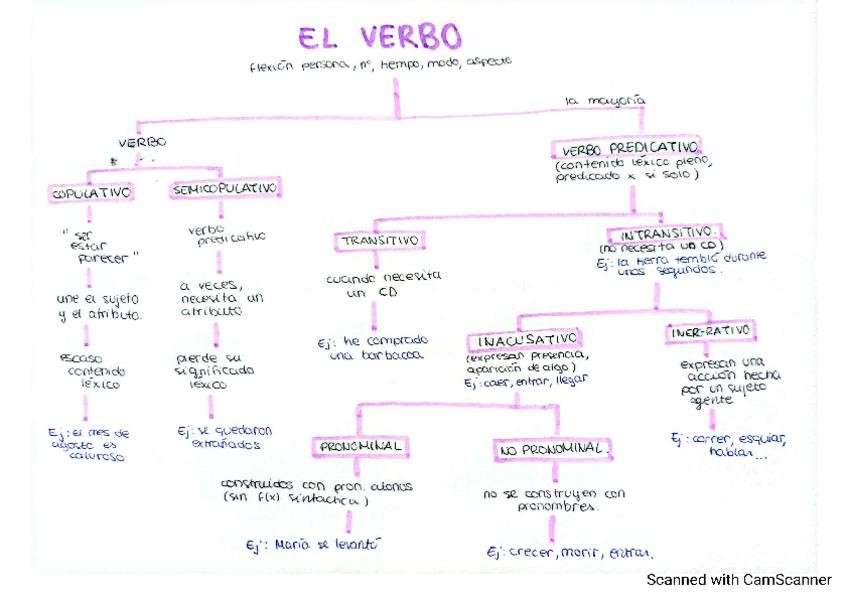 EL VERBO
flexión persona, nº, tiempo, modo, aspecto
la mayoría
VERBO
COPULATIVO
"ser
estar
parecer"
une el sujeto
y el atributo.
escaso
contenido
léxico
Ej: el mes de
agosto es
caluroso
SEMICOPULATIVO
verbo
predicativo
a veces,
necesita un
atributo
pierde su
significado
léxico
Ej: se quedaron
extrañados
VERBO PREDICATIVO
(contenido léxico pleno,
predicado x si solo)
TRANSITIVO
cuando necesita
un CD
Ej: he comprado
una barbacoa
INTRANSITIVO.
(no necesita un CD)
Ej: la tierra tembló durante
unos segundos.
INACUSATIVO
(expresan presencia,
aparición de algo)
Ej: caer, entrar, llegar
PRONOMINAL
construidos con pron. atonos
(sin f(x) sintactica)
Ej: María se levantó
NO PRONOMINAL.
no se construyen con
pronombres.
Ej: crecer, morir, entrar.
INERGATIVO
expresan una
acción hecha
por un sujeto
agente
Ej: correr, esquiar,
hablar...
Scanned with CamScanner